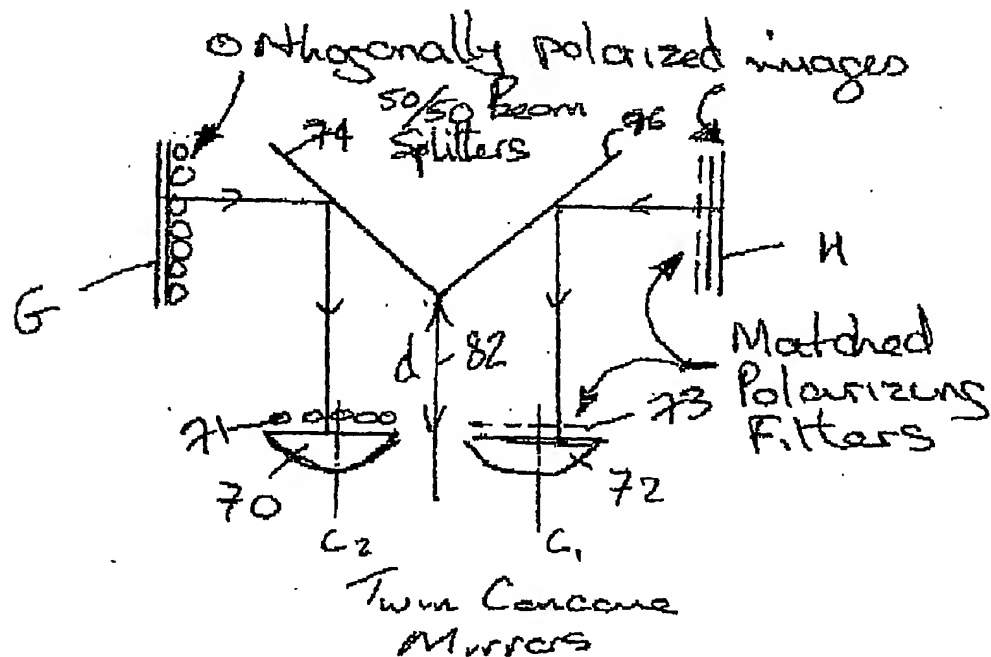 Orthogonally polarized images
50/50 Beam
Splitters
74
96
G
H
d
82
Matched
Polarizing
Filters
71
73
70
72
C2
C1
Twin Concave
Mirrors